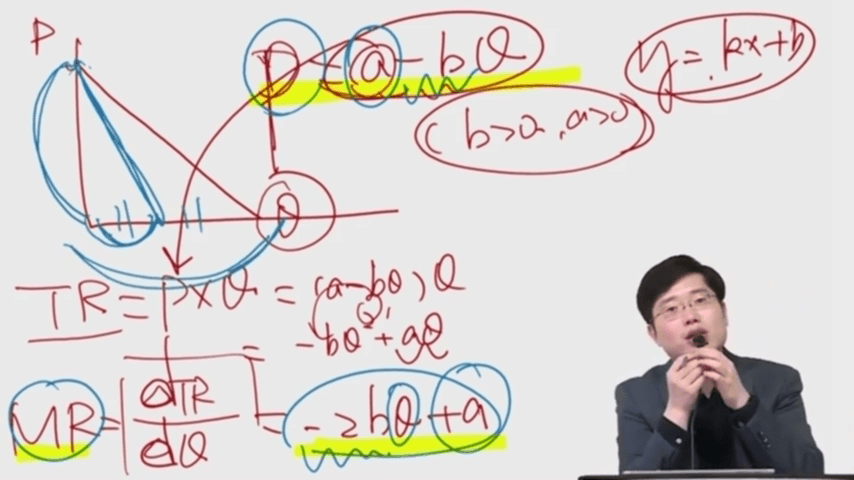 P
P = a - bQ
y = kx+b
( b>0, a>0 )
Q
TR = P×Q = (a-bQ)Q
= -bQ²+aQ
MR = dTR/dQ = -2bQ+a